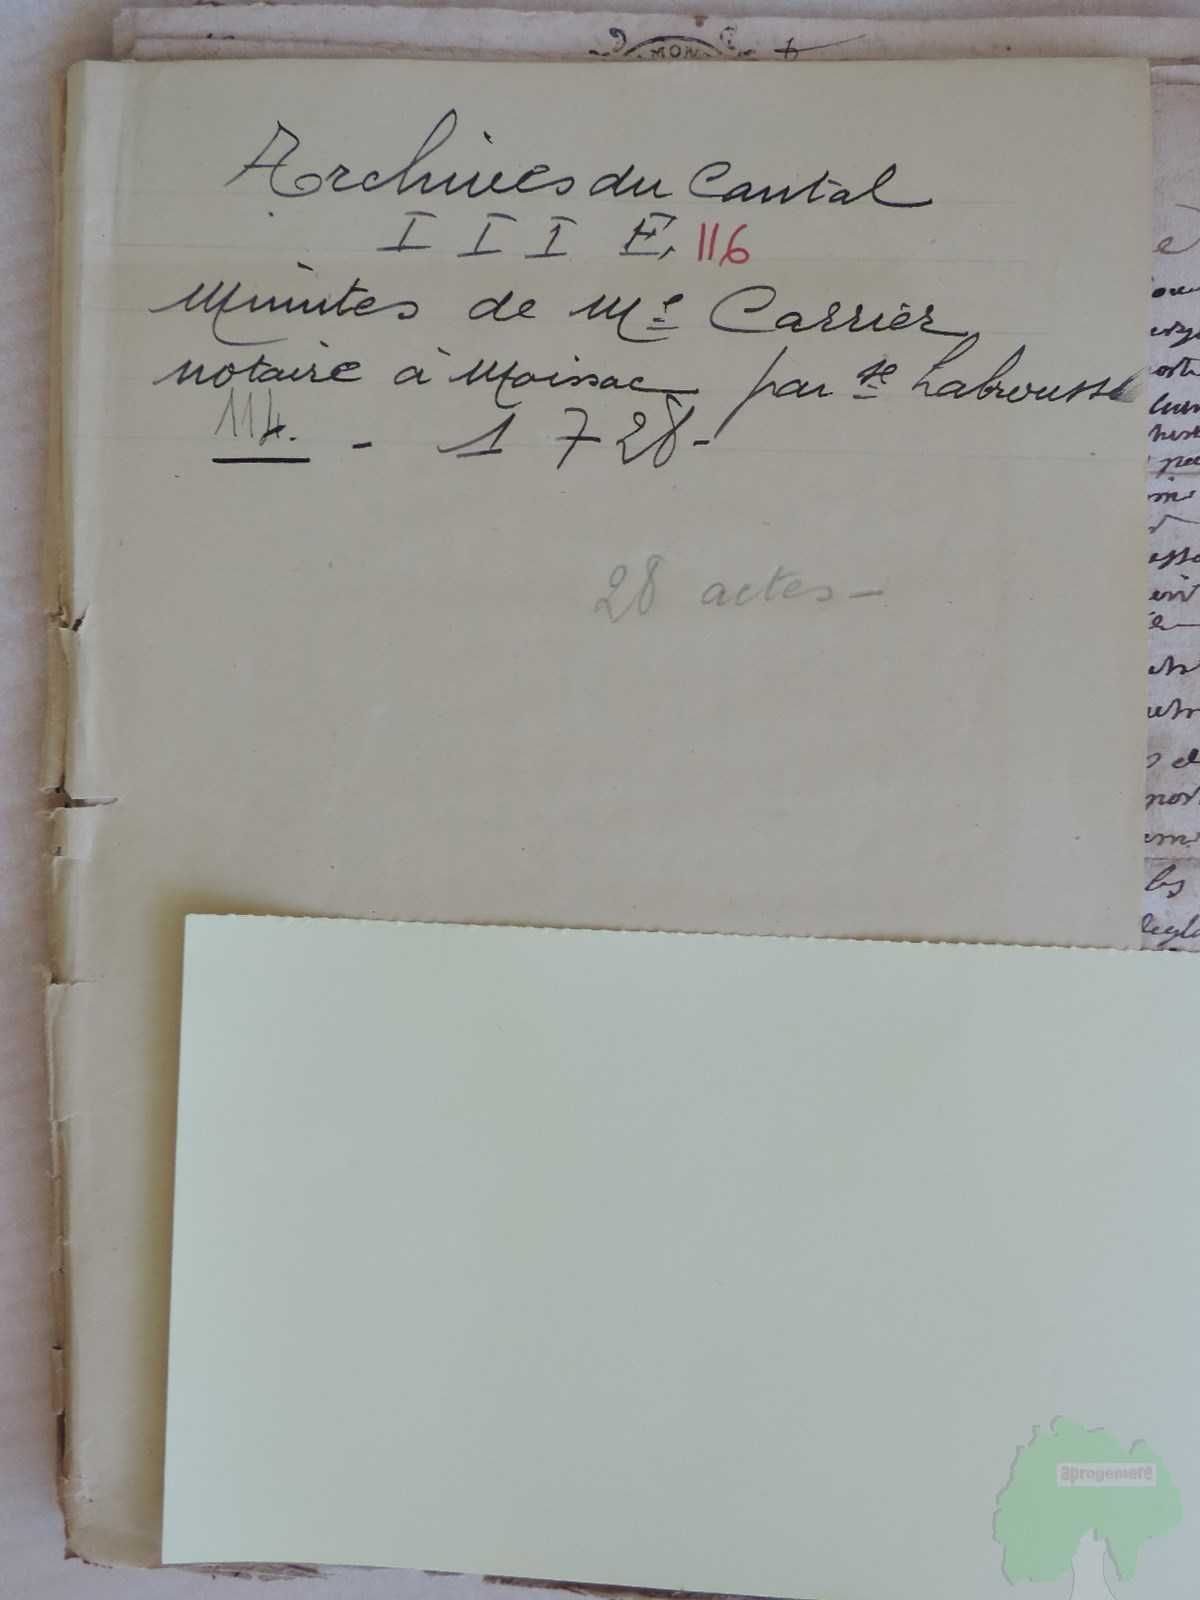 MON
Archives du Cantal
III E, 116
Minutes de Me Carrier
notaire à Moissac par
114. - 1728-
28 actes -
aprogemere